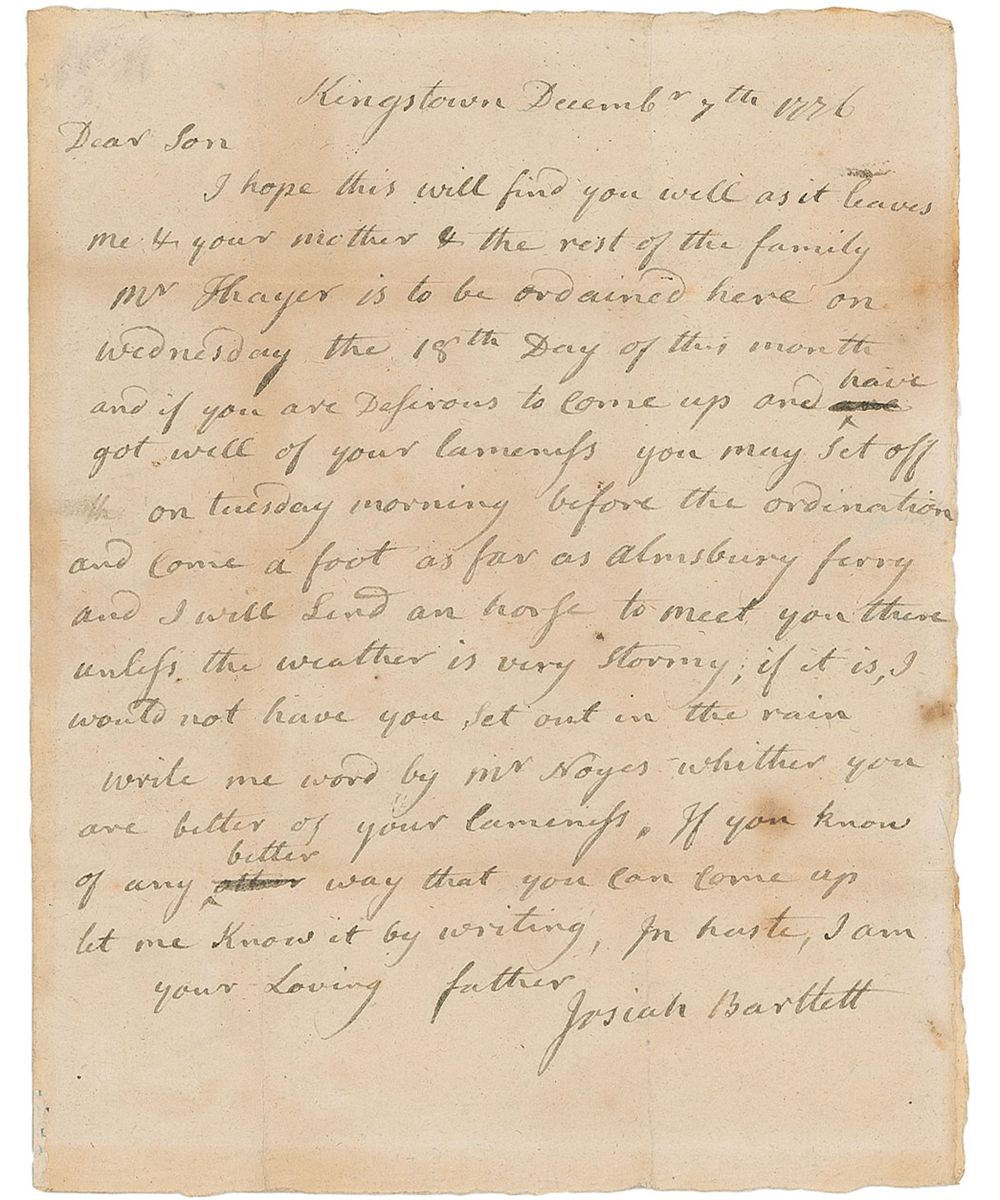 Kingstown Decembr 7th 1776
Dear Son
I hope this will find you well as it leaves
me & your mother & the rest of the family
Mr Thayer is to be ordained here on
wednesday the 18th Day of this month
and if you are Desirous to Come up and have
got well of your lameness you may Set off
on tuesday morning before the ordination
and Come a foot as far as Almsbury ferry
and I will Send an horse to meet you there
unless the weather is very Stormy; if it is, I
would not have you Set out in the rain
write me word by Mr Noyes whither you
are better of your lameness, If you know
of any better way that you Can Come up
let me Know it by writing, In haste, I am
your Loving father
Josiah Bartlett